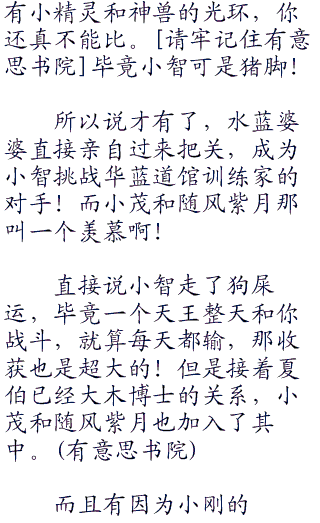 有小精灵和神兽的光环，你
还真不能比。[请牢记住有意
思书院]毕竟小智可是猪脚！
所以说才有了，水蓝婆
婆直接亲自过来把关，成为
小智挑战华蓝道馆训练家的
对手！而小茂和随风紫月那
叫一个羡慕啊！
直接说小智走了狗屎
运，毕竟一个天王整天和你
战斗，就算每天都输，那收
获也是超大的！但是接着夏
伯已经大木博士的关系，小
茂和随风紫月也加入了其
中。(有意思书院)
而且有因为小刚的